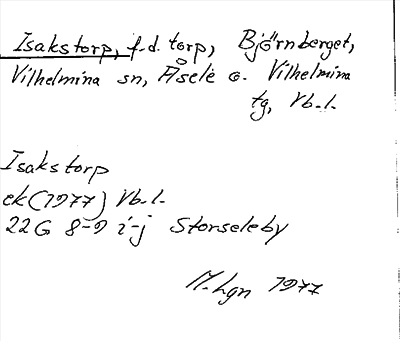 Isakstorp, f.d. torp, Björnberget,
Vilhelmina sn, Åsele o. Vilhelmina
tg, Vb.l.
Isakstorp
ek (1977) Vb.l.
22G 8-9 i-j Storseleby
M. Lgn 1977